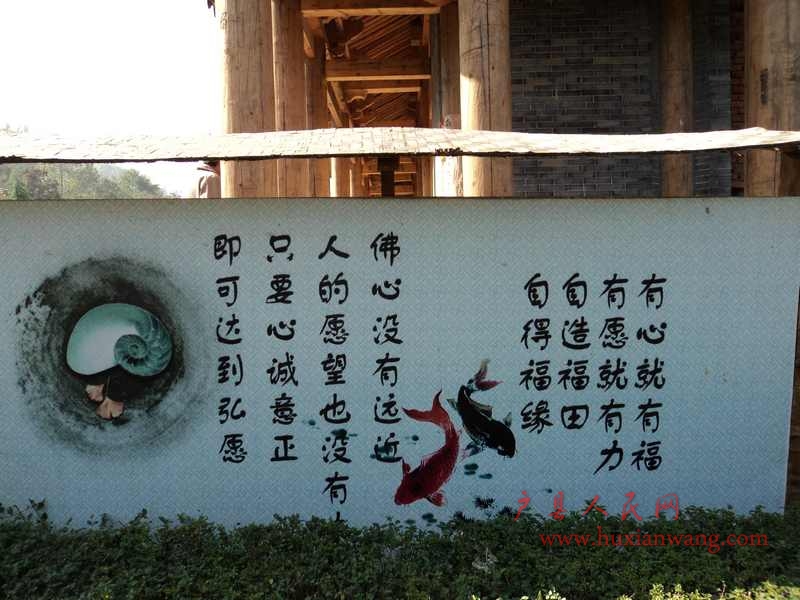 有心就有福
有愿就有力
自造福田
自得福缘
佛心没有远近
人的愿望也没有
只要心诚意正
即可达到弘愿
户县人民网
www.huxianwang.com